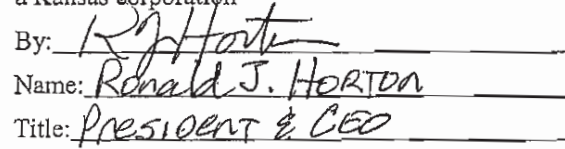 a Kansas corporation
By: RJ Horton
Name: Ronald J. HORTON
Title: PRESIDENT & CEO